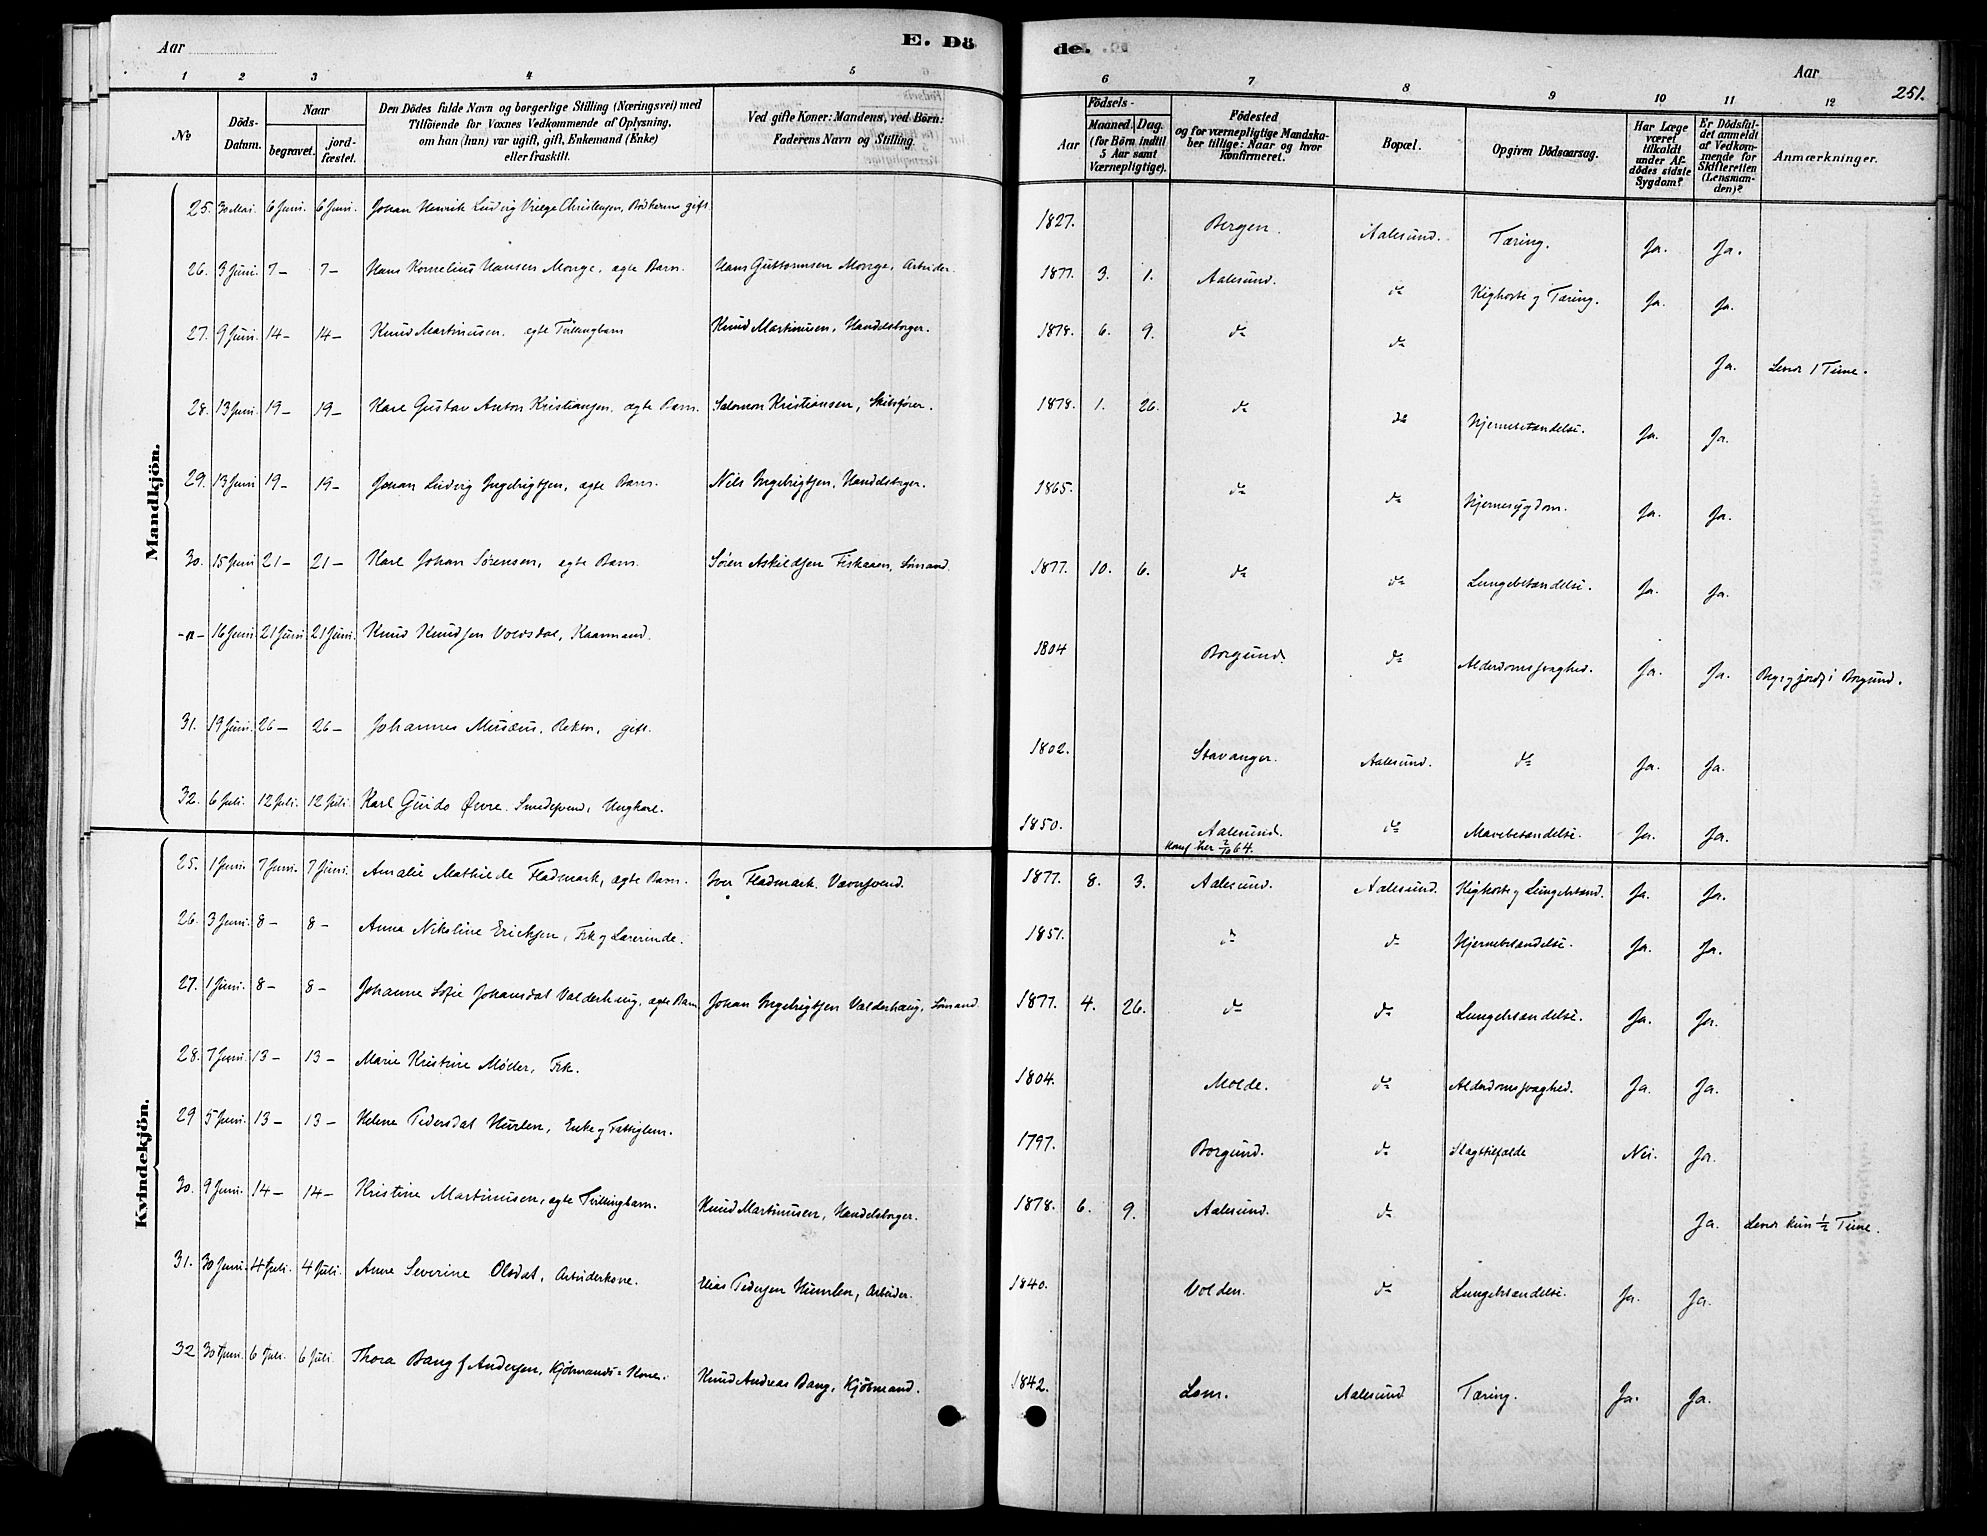 Aar
E. Dö
de.
Aar
251.
1 2 3 4 5 6 7 8 9 10 11 12
No
Döds-Datum.
Naar
begravet.
jord-fæstet.
Den Dödes fulde Navn og borgerlige Stilling (Næringsvei) med
Tilföiende for Voxnes Vedkommende af Oplysning,
om han (hun) var ugift, gift, Enkemand (Enke)
eller fraskilt.
Ved gifte Koner: Mandens, ved Börn:
Faderens Navn og Stilling.
Födsels-
Aar
Maaned. Dag.
(for Börn indtil
5 Aar samt
Værnepligtige).
Födested
og for værnepligtige Mandska-
ber tillige: Naar og hvor
konfirmeret.
Bopæl.
Opgiven Dödsaarsag.
Har Læge
været
tilkaldt
under Af-
dödes sidste
Sygdom?
Er Dödsfal-
det anmeldt
af Vedkom-
mende for
Skifteretten
(Lensman-
den)?
Anmærkninger.
Mandkjön.
25. 30 Mai. 6 Juni. 6 Juni. Johan Henrik Ludvig Christensen, gift. 1827. Bergen. Aalesund. Tæring. Ja. Ja.
26. 3 Juni. 7 – 7 – Hans Kornelius Hansen Monge, ægte Barn. Hans Guttormsen Monge, Arbeider. 1877. 3. 1. Aalesund. do Kighoste og Tæring. Ja. Ja.
27. 9 Juni. 14 – 14 – Knud Martinusen. ægte Tvillingbarn Knud Martinusen, Handelsborger. 1878. 6. 9. do do Ja. Levde 1 Time.
28. 13 Juni. 19 – 19 – Karl Gustav Anton Kristiansen, ægte Barn. Salomon Kristiansen, Skibsfører. 1878. 1. 26. do do Hjernebetændelse. Ja. Ja.
29. 13 Juni 19 – 19 – Johan Ludvig Ingebrigtsen, ægte Barn. Nils Ingebrigtsen, Handelsborger. 1865. do do Hjernesygdom. Ja. Ja.
30. 15 Juni 21 – 21 – Karl Johan Sørensen, ægte Barn. Søren Askildsen Fiskaaen, Sømand. 1877. 10. 6. do do Lungebetændelse. Ja. Ja.
–n– 16 Juni 21 Juni 21 Juni. Knud Knudsen Voldsdal, Kaarmand. 1804 Borgund. do Alderdomssvaghed. Ja. Ja. Begr. og jordf. i Borgund.
31. 19 Juni. 26 – 26 – Johannes Musæus, Rektor, gift. 1802. Stavanger. Aalesund. do Ja. Ja.
32. 6 Juli. 12 Juli. 12 Juli. Karl Guido Øvre. Smedesvend, Ungkarl. 1850. Aalesund. Konf. her 2/10 64. do Mavebetændelse. Ja. Ja.
Kvindekjön.
25. 1 Juni. 7 Juni. 7 Juni. Amalie Mathilde Fladmark, ægte Barn. Iver Fladmark. 1877. 8. 3. Aalesund. Aalesund. Kighoste og Lungebetænd. Ja. Ja.
26. 3 Juni. 8 – 8 – Anna Nikoline Ericksen, Frk. og Lærerinde. 1851. do do Hjernebetændelse. Ja. Ja.
27. 1 Juni. 8 – 8 – Johanne Sofie Johansdat. Valderhaug, ægte Barn Johan Ingebrigtsen Valderhaug, Sømand 1877. 4. 26. do do Lungebetændelse. Ja. Ja.
28. 7 Juni. 13 – 13 – Marie Kristine Møller, Frk. 1804. Molde. do Alderdomssvaghed. Ja. Ja.
29 5 Juni. 13 – 13 – Helene Pedersdat. Humlen, Enke og Fattiglem. 1797. Borgund. do Slagtilfælde Nei. Ja.
30. 9 Juni. 14 – 14 – Kristine Martinusen, ægte Tvillingbarn. Knud Martinusen, Handelsborger. 1878. 6. 9. Aalesund. do Ja. Levde kun 1/2 Time.
31. 30 Juni. 4 Juli. 4 Juli. Anne Severine Olsdat, Arbeiderkone. Elias Pedersen Humlen, Arbeider. 1840. Volden. do Lungebetændelse. Ja. Ja.
32 30 Juni. 6 Juli. 6 Juli. Thora Bang f. Andersen, Kjøbmands-Kone. Knud Andreas Bang, Kjøbmand. 1842. Lom. Aalesund Tæring. Ja. Ja.